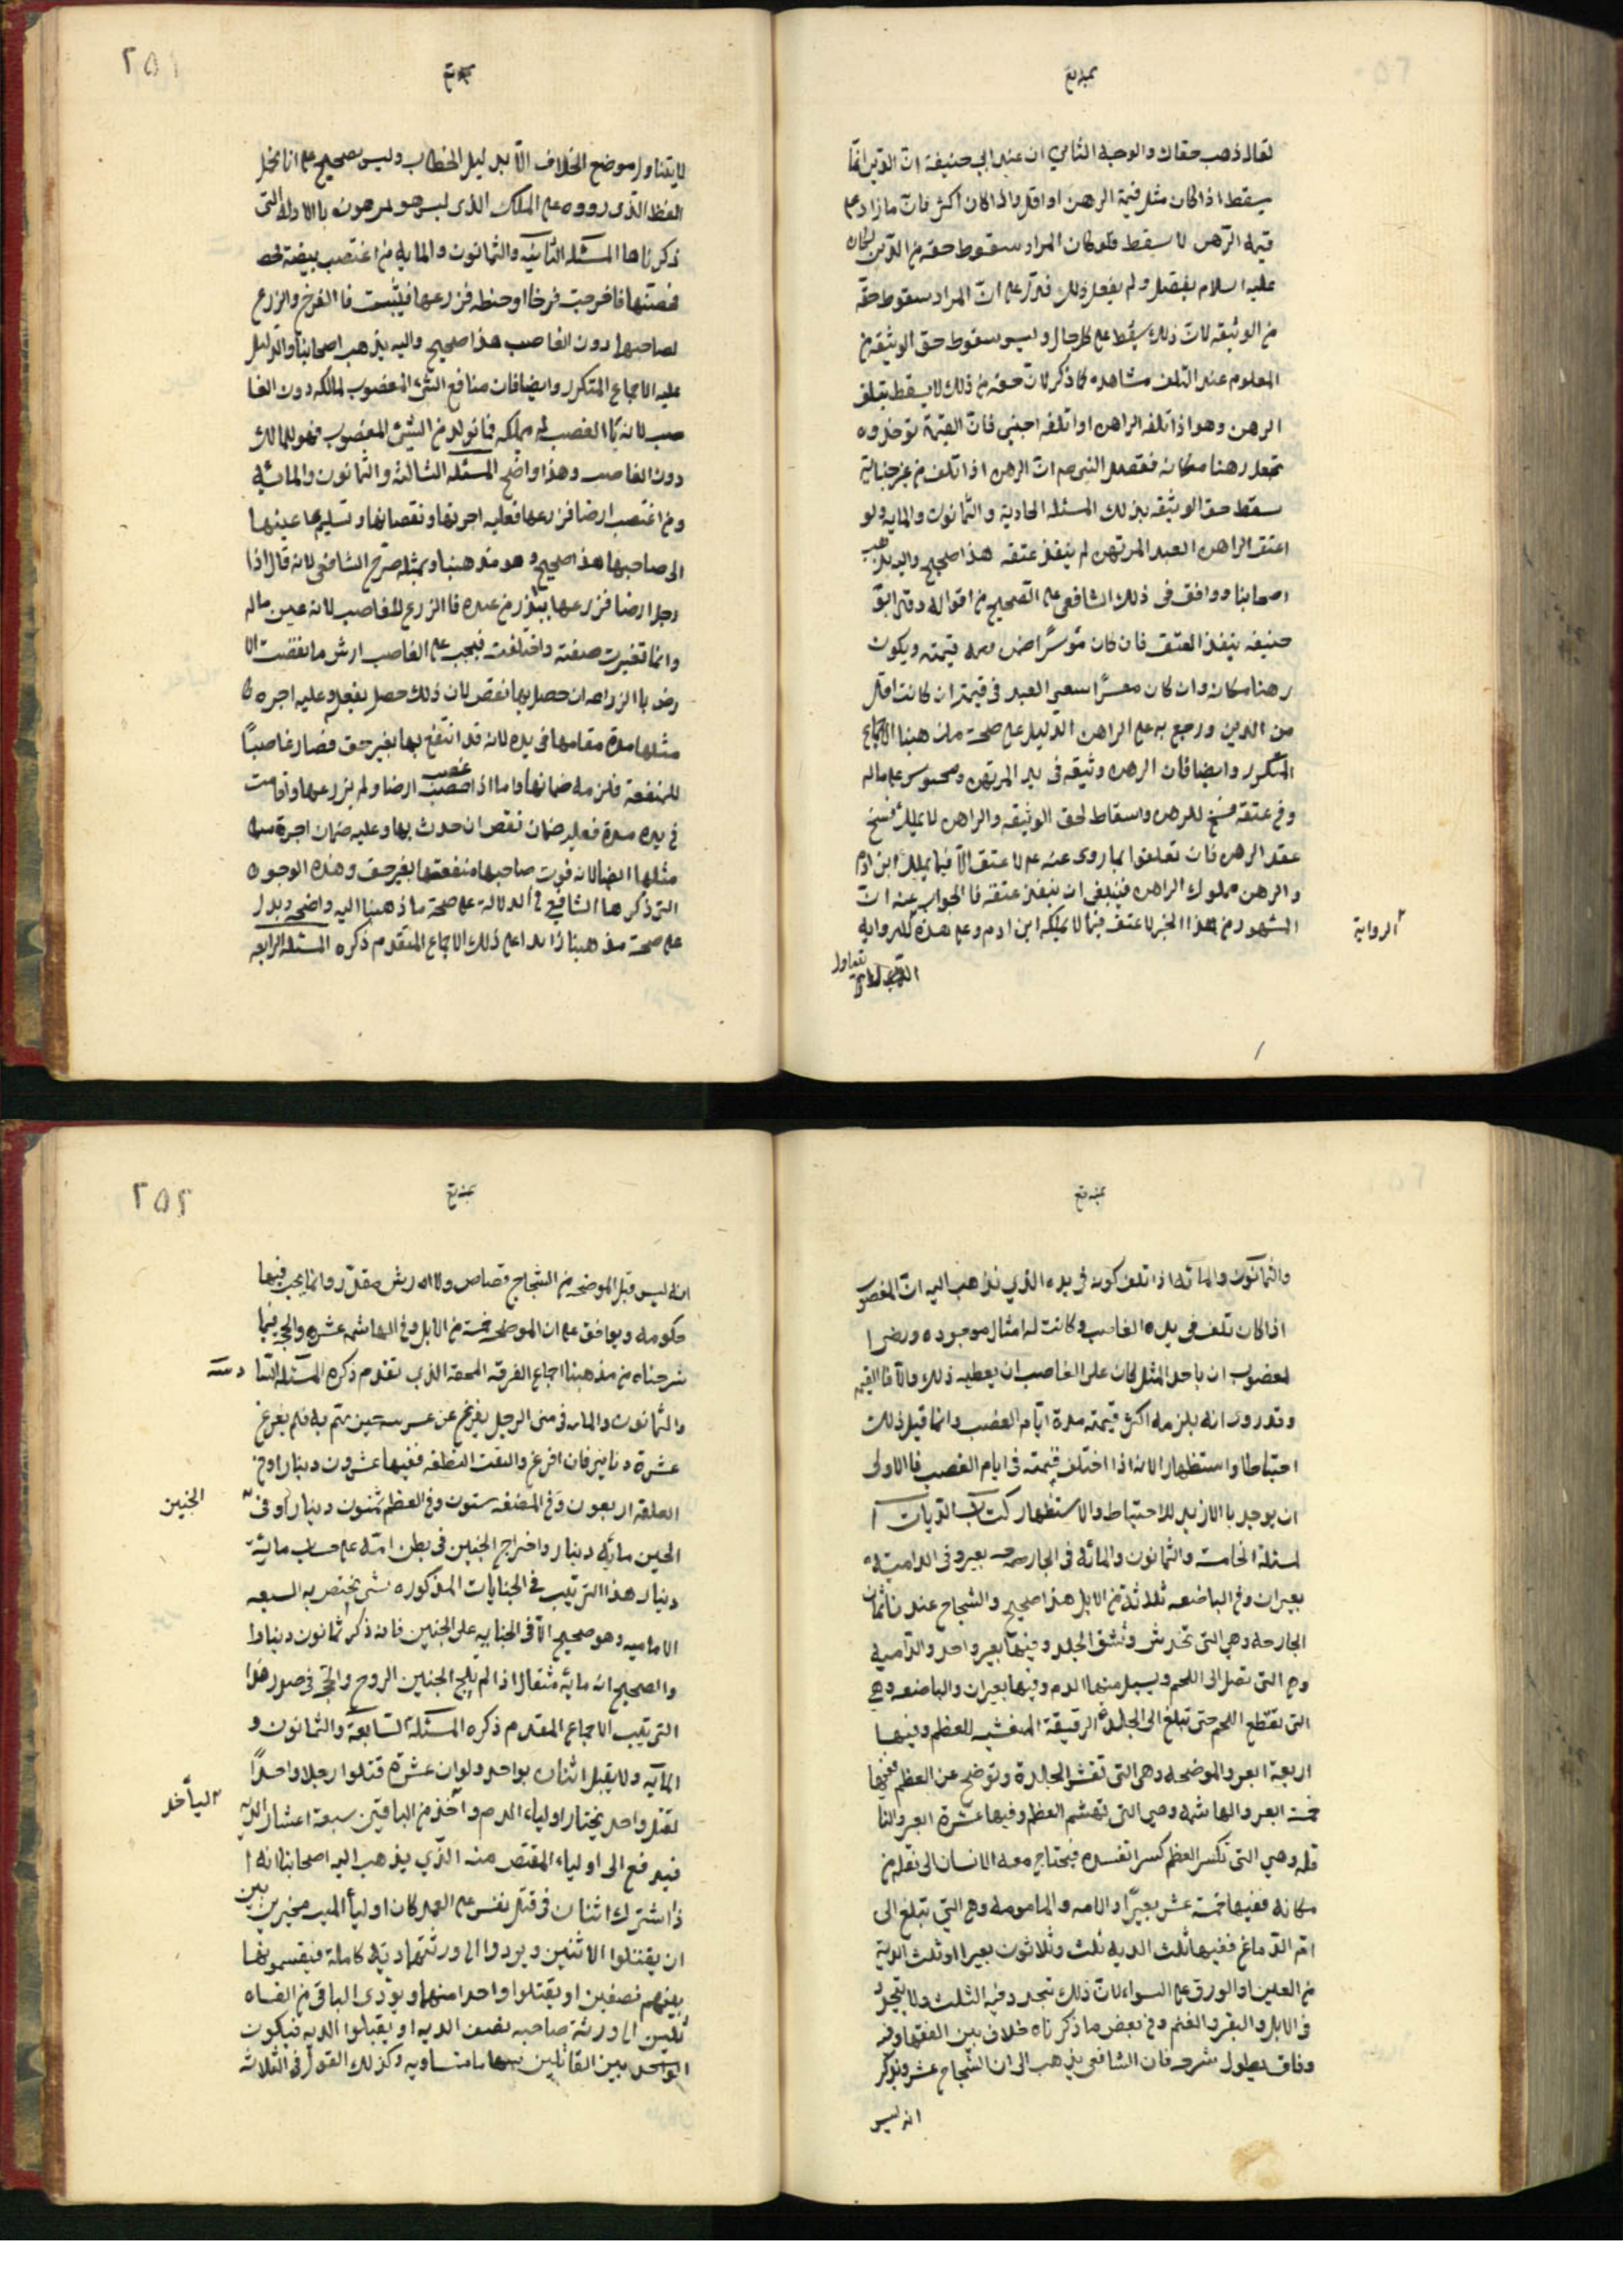 لقال ذهب حقاك والوجه الثاني ان عند ابي حنيفة انّ الدّين انمّا
يسقط اذا كان مثل قيمة الرهن او اقل واذا كان اكثر فانّ ما زاد على
قيمة الرّهن لا يسقط فلو كان المراد سقوط حقه من الدّين لكان
عليه السلام يفصّل ولم يفعل ذلك فدّل على انّ المراد سقوط حقّه
من الوثيقه لانّ ذلك يسقط على كل حال وليس سقوط حق الوثيقه من
المعلوم عند التلف مشاهده كما ذكر لانّ حقه من ذلك لا يسقط بتلف
الرهن وهو اذا تلفه الراهن او اتلفه اجنبى فانّ القيمة توخذ وه
تجعل رهنا مكانه فقصد النبى صم انّ الرهن اذا تلف من غير جناية
سقط حق الوثيقه بذلك المسئله الحادية والثّمانون والمايه ولو
اعتق الراهن العبد المرتهن لم ينفذ عتقه هذا صحيح واليه يذهب
اصحابنا ووافق فى ذلك الشافعى على الصّحيح من اقواله وقد ابق
حنيفه ينفذ العتق فان كان موسرًا قيمته ويكون
رهنا مكانه وان كان معسرًا سعى العبد فى قيمته ان كانت اقل
من الدين ورجع به على الراهن الدليل على صحت مذهبنا الاجماع
المتكرر وايضا فان الرهن وثيقه فى يد المرتهن ومحبوس على ماله
وفى عتقه فسخ للرهن واسقاط لحق الوثيقه والراهن لا يملك فسخ
عقد الرهن فان تعلقوا بما روى عنه عم لا عتق الّا فيما يملك ابن ادم
والرهن مملوك الراهن فينبغى ان ينفذ عتقه فا الجواب عنه انّ
المشهور من هذا الخبر لا عتق فيما لا يملكه ابن ادم وعلى هذه الروايه
الرواية
٢٥١
لا يتناول موضع الخلاف الّا بدليل الخطاب وليس بصحيح على انا نحمل
اللفظ الذى رووه على الملك الذى ليس هو بمرهون با الادله التى
ذكرناها المسئله الثانيه والثمانون والمايه من اغتصب بيضه
فحضنها فاخرجت فرخا او حنطه فزرعها فنبتت فا الفرخ والزرع
لصاحبها دون الغاصب هذا صحيح واليه يذهب اصحابنا والدليل
عليه الاجماع المتكرر وايضا فان منافع الشئ المغصوب لمالكه دون الغا
صب لانه با الغصب لم يملكه فما تولد من الشئ المغصوب فهو للمالك
دون الغاصب وهذا واضح المسئله الثالثه والثمانون والمائه
ومن اغتصب ارضا فزرعها فعليه اجرتها ونقصانها وتسليم عينها
الى صاحبها هذا صحيح وهو مذهبنا وبمثله صرّح الشافعى لانه قال اذا
رجل ارضا فزرعها ببذر من عنده فا الزرع للغاصب لانه عين ماله
وانما تغيرت صفته واختلفت فيجب على الغاصب ارش ما نقصت الا
رض با الزراعه ان حصل بها نقص لان ذلك حصل بفعله وعليه اجره
مثلها مدة مقامها فى يده لانه قد انتفع بها بغير حق فصار غاصبًا
للمنفعة فلزمه ضمانها واما اذا غصب ارضا ولم يزرعها واقامت
فى يده مدة فعليه ضمان نقص ان حدث بها وعليه ضمان اجرة
مثلها ايضا لانه فوت صاحبها منفعتها بغير حق وهذه الوجوه
التى ذكرها الشافعى فى الدلالة على صحة ما ذهبنا اليه واضحه ويدل
على صحت مذهبنا زايدا على ذلك الاجماع المتقدم ذكره المسئله الرابعه
والثّمانون والمائه اذا تلف كونه فى يده الذي نذهب اليه انّ المغصو
اذا كان تلف فى يده الغاصب وكانت له امثال موجوده ورضى ا
لمغضوب ان ياخذ المثل كان على الغاصب ان يعطيه ذلك والّا فا القيمه
وقد روى انه يلزمه اكثر قيمته مدة ايّام الغصب وانما قيل ذلك
احتياطا واستظهارا لانه اذا اختلف قيمته فى ايام الغصب فا الاولى
ان يوخذ با الازيد للاحتياط والاستظهار كتاب الدّيات ا
لمسئله الخامسة والثمانون والمائه فى الجارحه بعير وفى الدامية
بعيران وفى الباضعه ثلاثة من الابل هذا صحيح والشجاج عندنا ثمان
الجارحه وهى التى تخدش وتشق الجلد وفيها بعير واحد والدّاميه
وهى التى تصل الى اللحم ويسيل منها الدم وفيها بعيران والباضعه وهى
التى تقطع اللحم حتى تبلغ الى الجلدة الرقيقة المغشيه للعظم وفيها
اربعة ابعر والموضحه وهى التى تقشر الجلدة وتوضح عن العظم ففيها
خمسة ابعر والهاشمه وهى التى تهشم العظم وفيها عشرة ابعر والنا
قله وهى التى تكسر العظم كسرا تفسده فيحتاج معه الانسان الى نقله من
مكانه ففيها خمسة عشر بعيرًا والامه والمامومه وهى التى تبلغ الى
امّ الدّماغ ففيها ثلث الديه ثلث وثلاثون بعيرا او ثلث الدية
من العين او الورق على السواء لانّ ذلك يتحدد فيه الثلث ولا يتحدد
فى الابل والبقر والغنم وفى بعض ما ذكرناه خلاف بين الفقهاء وفيه
وفاق يطول شرحه فان الشافعى يذهب الى ان الشجاج عشر ويذكر
انه ليس
٢٥٢
انه ليس قبل الموضحه من الشجاج قصاص ولا ارش مقدّر وانما يجب فيها
حكومه ويوافق على ان الموضحه خمسة من الابل وفى الهاشمه عشره والحجه فيما
شرحناه من مذهبنا اجماع الفرقه المحقه الذى تقدم ذكره المسئله السّا دسه
والثمانون والمايه فى منى الرجل يفزع عن عرسه حين يتم به فلم يفرغ
عشرة دنانير فان افرغ والقت النطفه ففيها عشرون دينارا وفى
العلقه اربعون وفى المضغه ستون وفى العظم ثمنون دينارًا وفى
الجنين
الجنين مائه دينار واخراج الجنين فى بطن امّه على حساب مائة
دينار هذا الترتيب فى الجنايات المذكوره شئ يختص به الشيعه
الاماميه وهو صحيح الّا فى الجنايه على الجنين فانه ذكر ثمانون دينارا
والصحيح انه مائة مثقال اذا لم يلج الجنين الروح والحجة فى هذا
الترتيب الاجماع المقدم ذكره المسئلة السّابعة والثمانون و
المائه ولا يقبل اثنان بواحد ولو ان عشرة قتلوا رجلا واحدًا
لقتل واحد يختار اولياء الدم واخذ من الباقين سبعة اعشار الديه
فيدفع الى اولياء المقتص منه الذّي يذهب اليه اصحابنا انه ا
ذا اشترك اثنان فى قتل نفس على العمد كان اولياء الميت مخيرين بين
ان يقتلوا الاثنين ويردوا الى ورثتهما ديّه كاملة فيقسمونها
بينهم نصفين او يقتلوا واحدا منهما ويؤدى الباقى من القا
تلين الى ورثة صاحبه نصف الديه او يقبلوا الديه فيكون
بين القاتلين متساويه وكذلك القول فى الثلاثه